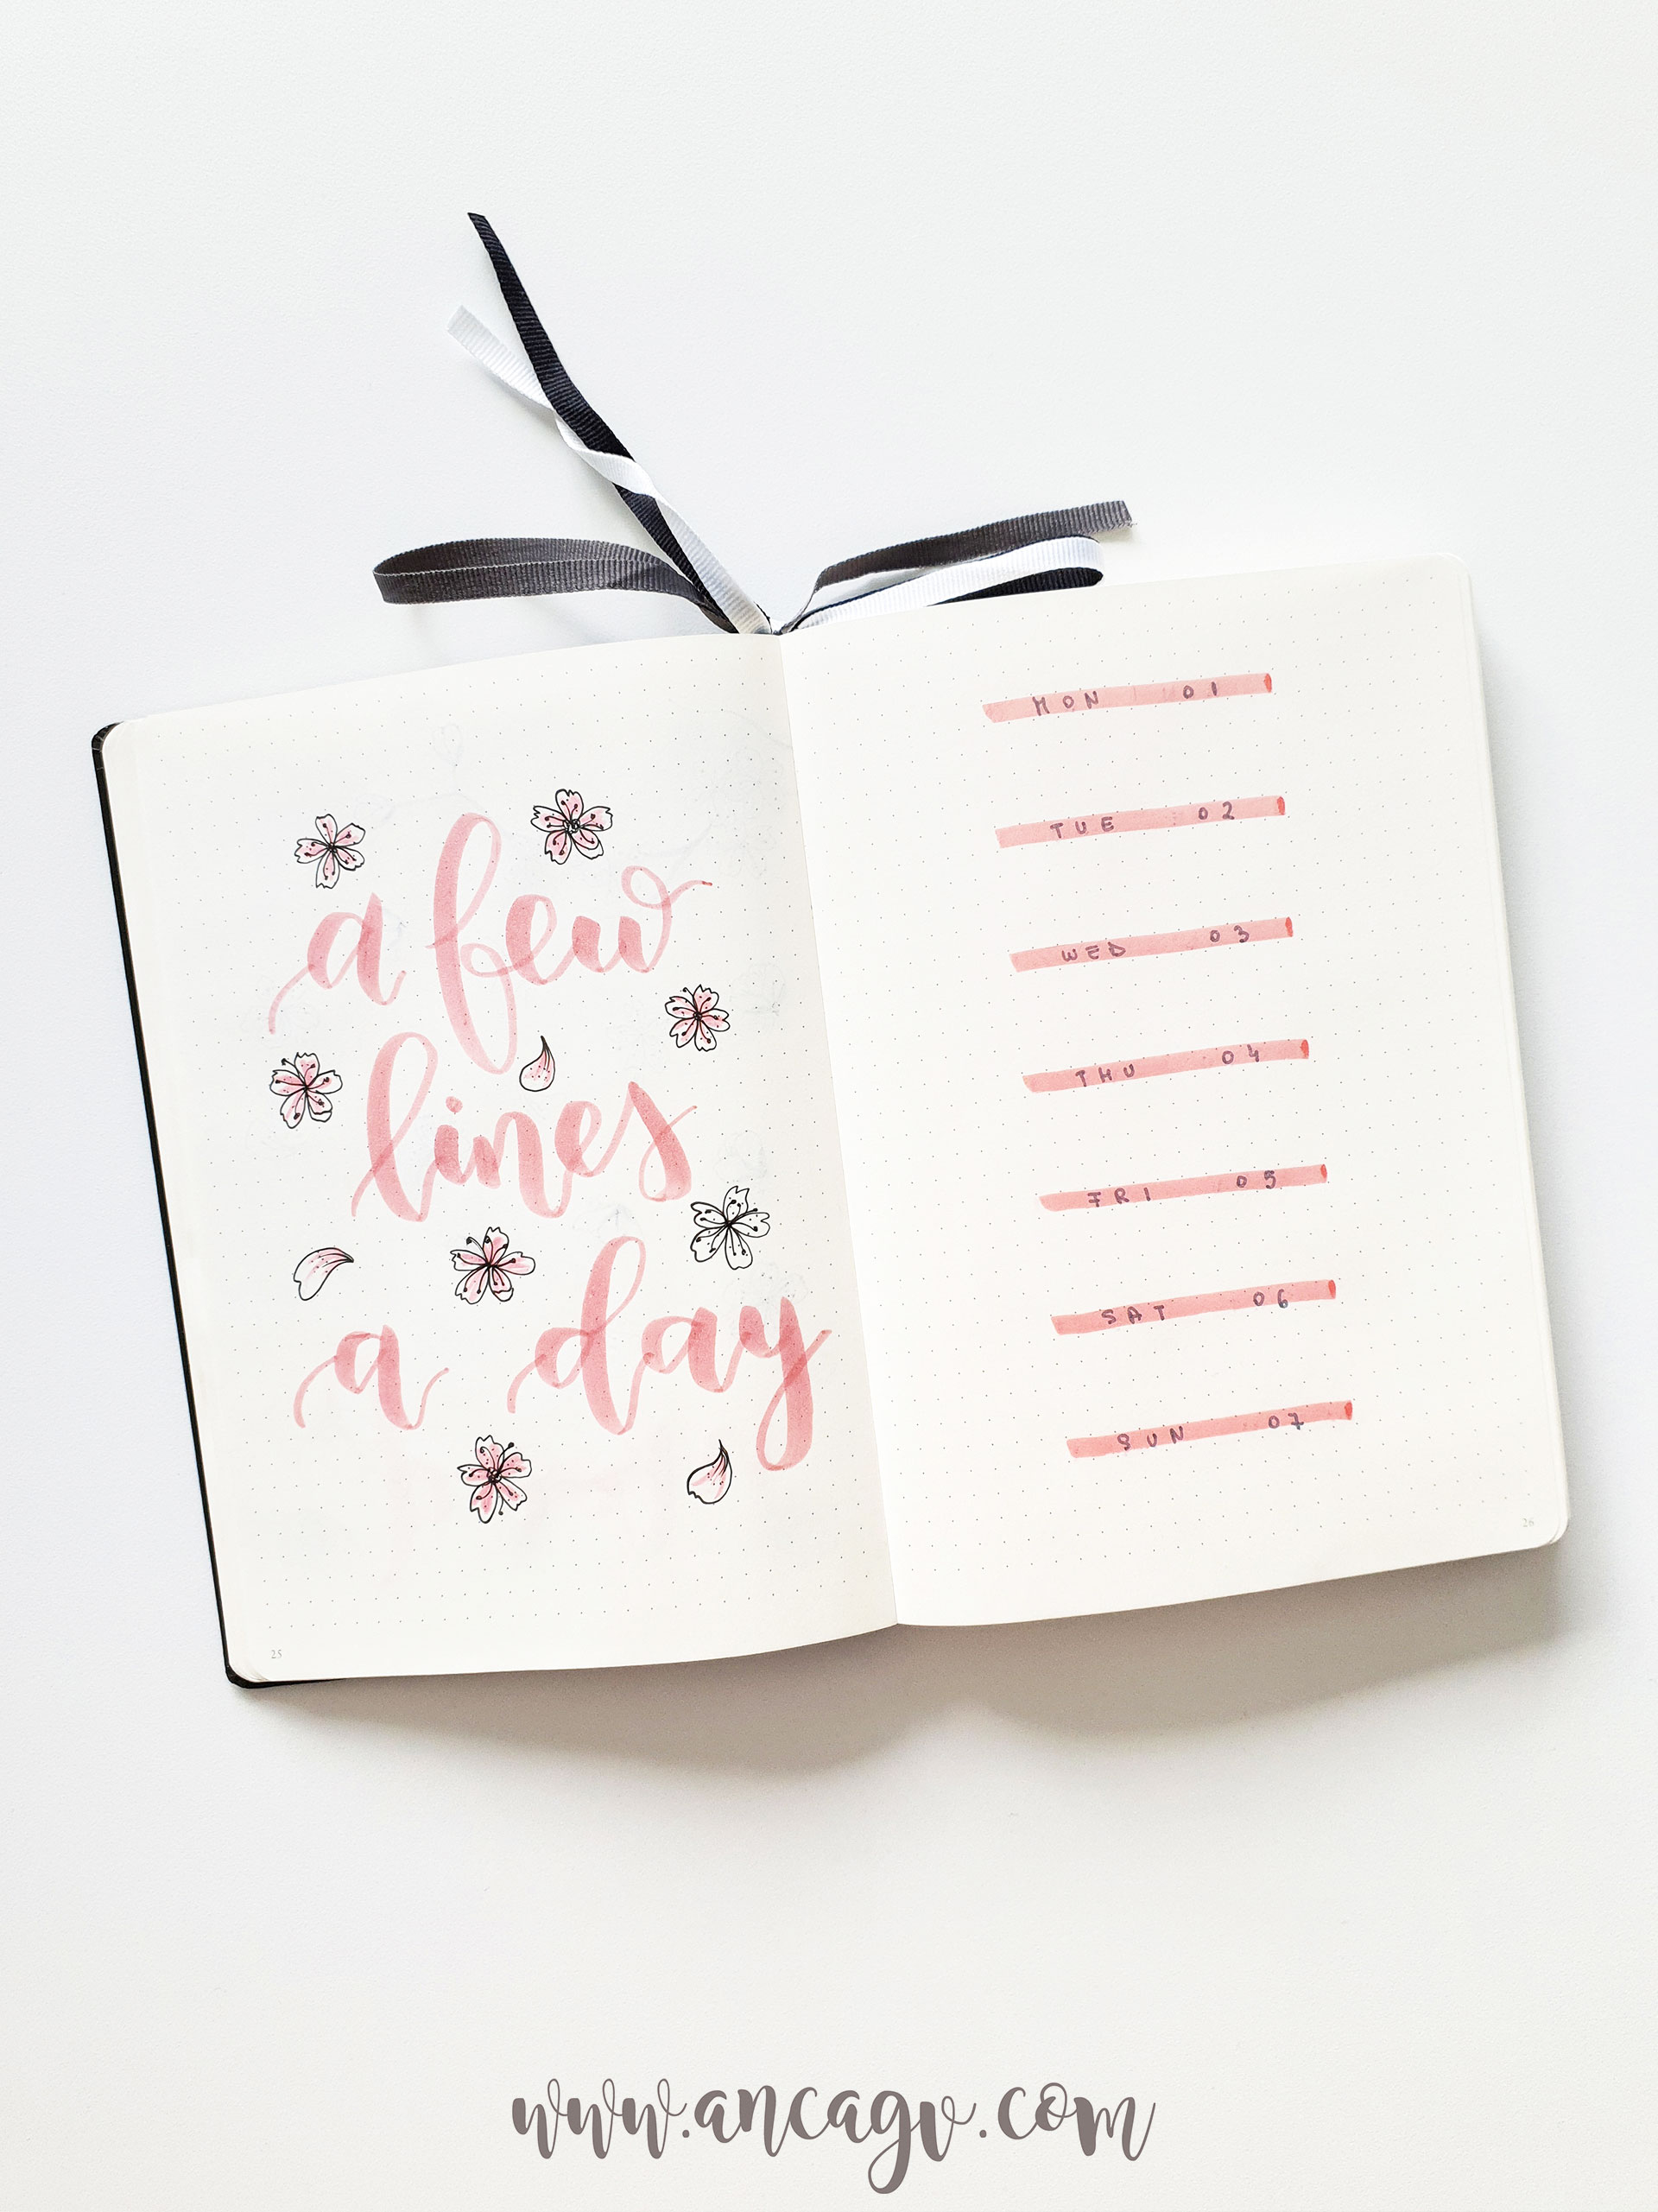 a few
lines
a day
25
MON 01
TUE 02
WED 03
THU 04
FRI 05
SAT 06
SUN 07
26
www.ancagv.com